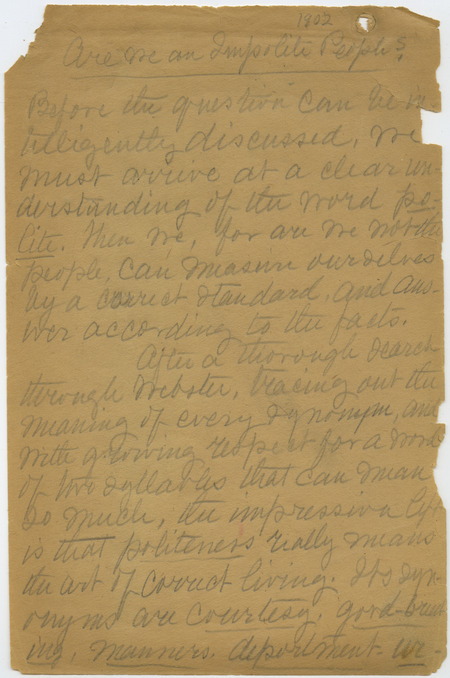 1802
Are we an Impolite People?
Before the question can be in-
telligently discussed, we
must arrive at a clear un-
derstanding of the word po-
lite. Then we, for are we not the
people, can measure ourselves
by a correct standard, and ans-
wer according to the facts.
After a thorough search
through Webster, tracing out the
meaning of every synonym, and
with growing respect for a word
of two syllables that can mean
so much, the impression left
is that politeness really means
the art of correct living. Its syn-
onyms are courtesy, good-breed-
ing, manners, deportment, ur-